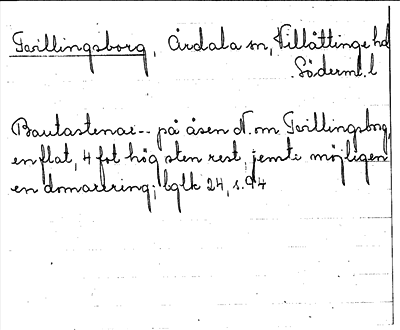 Tvillingsborg, Årdala sn, Villåttinge hd
Söderml. l
Bautastenar-- på åsen N. om Tvillingsborg,
en flat, 4 fot hög sten rest, jemte möjligen
en domarring; bglk 24, s. 94